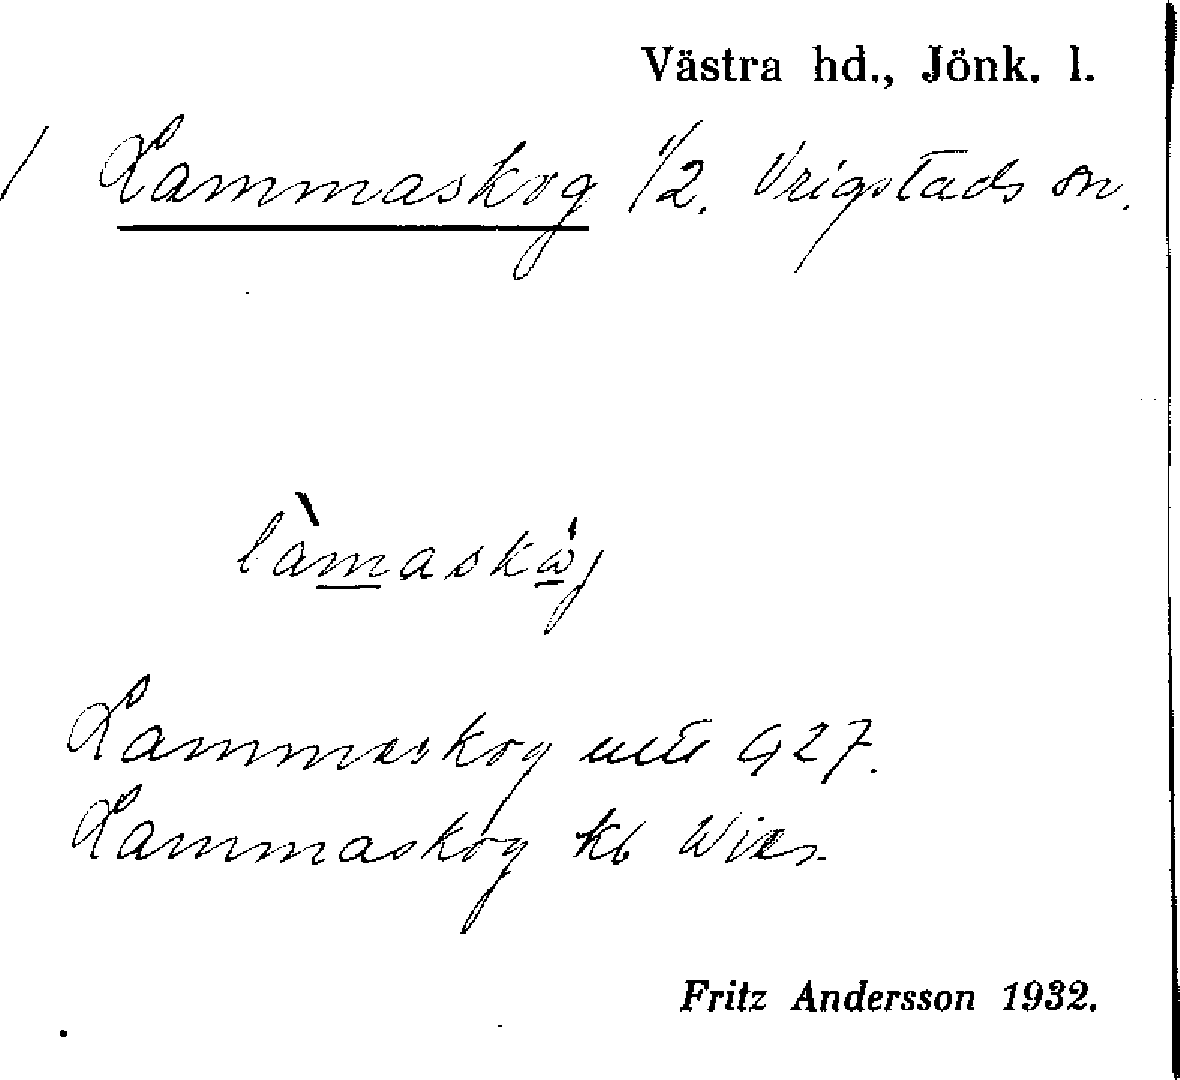 Västra hd., Jönk. l.
/ Lammaskog 1/2. Vrigstads sn.
làmaskωj
Lammaskog 927.
Lammaskog kb
Fritz Andersson 1932.